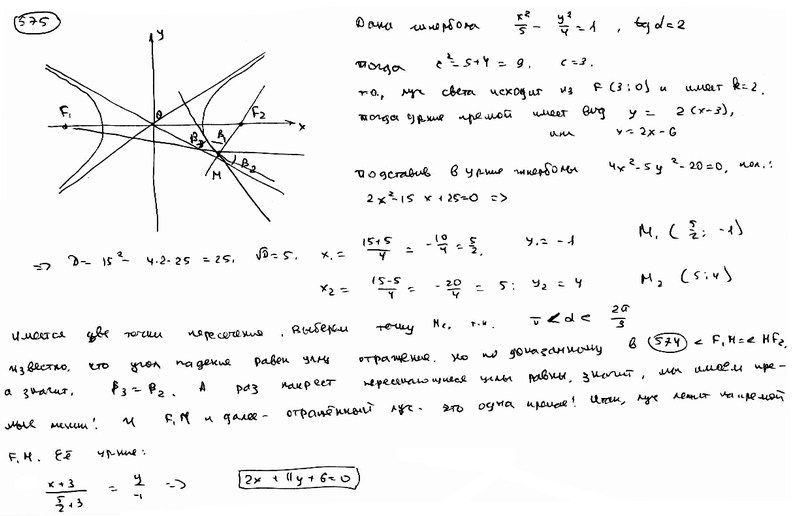 575
Дана гипербола x²/5 - y²/4 = 1, tg α = 2
тогда c² = 5+4 = 9. c=3.
т.о, луч света исходит из F (3; 0) и имеет k=2.
тогда ур-ие прямой имеет вид y = 2(x-3),
или y = 2x - 6
Подставив в ур-ие гиперболы 4x² - 5y² - 20=0, пол.:
2x² - 15x + 25=0 =>
y
x
0
F₁
F₂
β₃
β₁
β₂
M
=> D = 15² - 4·2·25 = 25, √D = 5. x₁ = (15+5)/4 = -10/4 = 5/2, y₁ = -1 M₁ (5/2; -1)
x₂ = (15-5)/4 = -20/4 = 5; y₂ = 4 M₂ (5; 4)
имеется две точки пересечения. Выберем точку M₁, т.к. < α < 2π/3
известно, что угол падения равен углу отражения. Но по доказанному в 574 < F₁M = < MF₂,
а значит, β₃ = β₂. А раз накрест пересекающиеся углы равны, значит, мы имеем пря-
мые линии! и F₁M и далее - отражённый луч - это одна прямая! Итак, луч лежит на прямой
F₁M. Её ур-ие:
(x+3)/(5/2+3) = y/-1 => 2x + 11y + 6 = 0